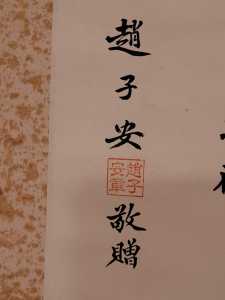 趙子安敬贈
趙子
安章